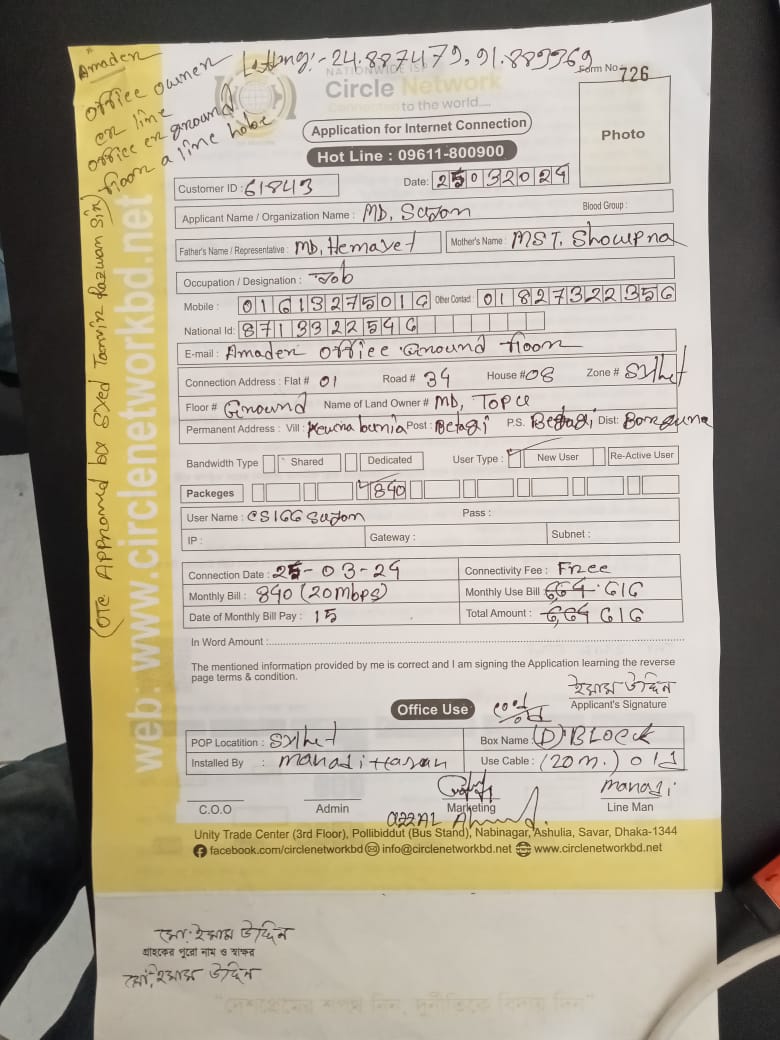 Amader
office owner
er line
office er ground
floor a line hobe
Lattlng:- 24.887479, 91.889969
(OTC Approved by Syed Tanvir Razwan Sir)
web: www.circlenetworkbd.net
NATIONWIDE ISP
Circle Network
Connected to the world....
Form No 726
Photo
Application for Internet Connection
Hot Line : 09611-800900
Customer ID : 61843 Date: 25032024
Applicant Name / Organization Name : MD, Sajon Blood Group :
Father's Name / Representative : MD, Hemayet Mother's Name : MST, Showpna
Occupation / Designation : Job
Mobile : 01613275016 Other Contact : 01827322356
National Id: 8713322546
E-mail : Amader office Ground floor
Connection Address : Flat # 01 Road # 34 House # 08 Zone # Sylhet
Floor # Ground Name of Land Owner # MD, Topu
Permanent Address : Vill : Post : Betagi P.S. Betagi Dist: Borguna
Bandwidth Type Shared Dedicated User Type : New User Re-Active User
Packeges 840
User Name : CS166 Sajon Pass :
IP : Gateway : Subnet :
Connection Date : 25-03-24 Connectivity Fee : Free
Monthly Bill : 840 (20mbps) Monthly Use Bill 664 616
Date of Monthly Bill Pay : 15 Total Amount : 664 616
In Word Amount :
The mentioned information provided by me is correct and I am signing the Application learning the reverse
page terms & condition.
ইমাম উদ্দিন
Applicant's Signature
Office Use
POP Locatition : Sylhet Box Name (D) Block
Installed By : Mahadi Hasan Use Cable : (20 m.)
Mahadi
C.O.O Admin Marketing Line Man
Unity Trade Center (3rd Floor), Pollibiddut (Bus Stand), Nabinagar, Ashulia, Savar, Dhaka-1344
facebook.com/circlenetworkbd info@circlenetworkbd.net www.circlenetworkbd.net
মো: ইমাম উদ্দিন
গ্রাহকের পুরো নাম ও স্বাক্ষর
মো: ইমাম উদ্দিন